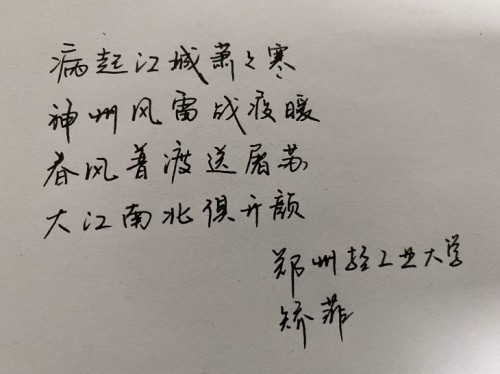 病起江城萧々寒
神州风雷战疫暖
春风普渡送屠苏
大江南北俱开颜
郑州轻工业大学
矫菲